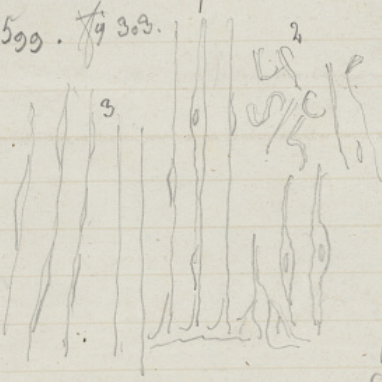 599. Fig 303.
1
2
3